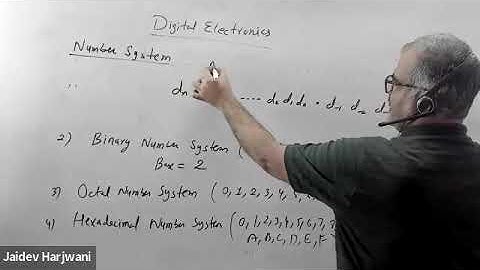 Digital Electronics
Number System
dn .... d2 d1 d0 . d-1 d-2 d
2) Binary Number System (
Base = 2
3) Octal Number System ( 0, 1, 2, 3, 4, 5,
4) Hexadecimal Number System ( 0, 1, 2, 3, 4, 5, 6, 7, 8
A, B, C, D, E, F
Jaidev Harjwani